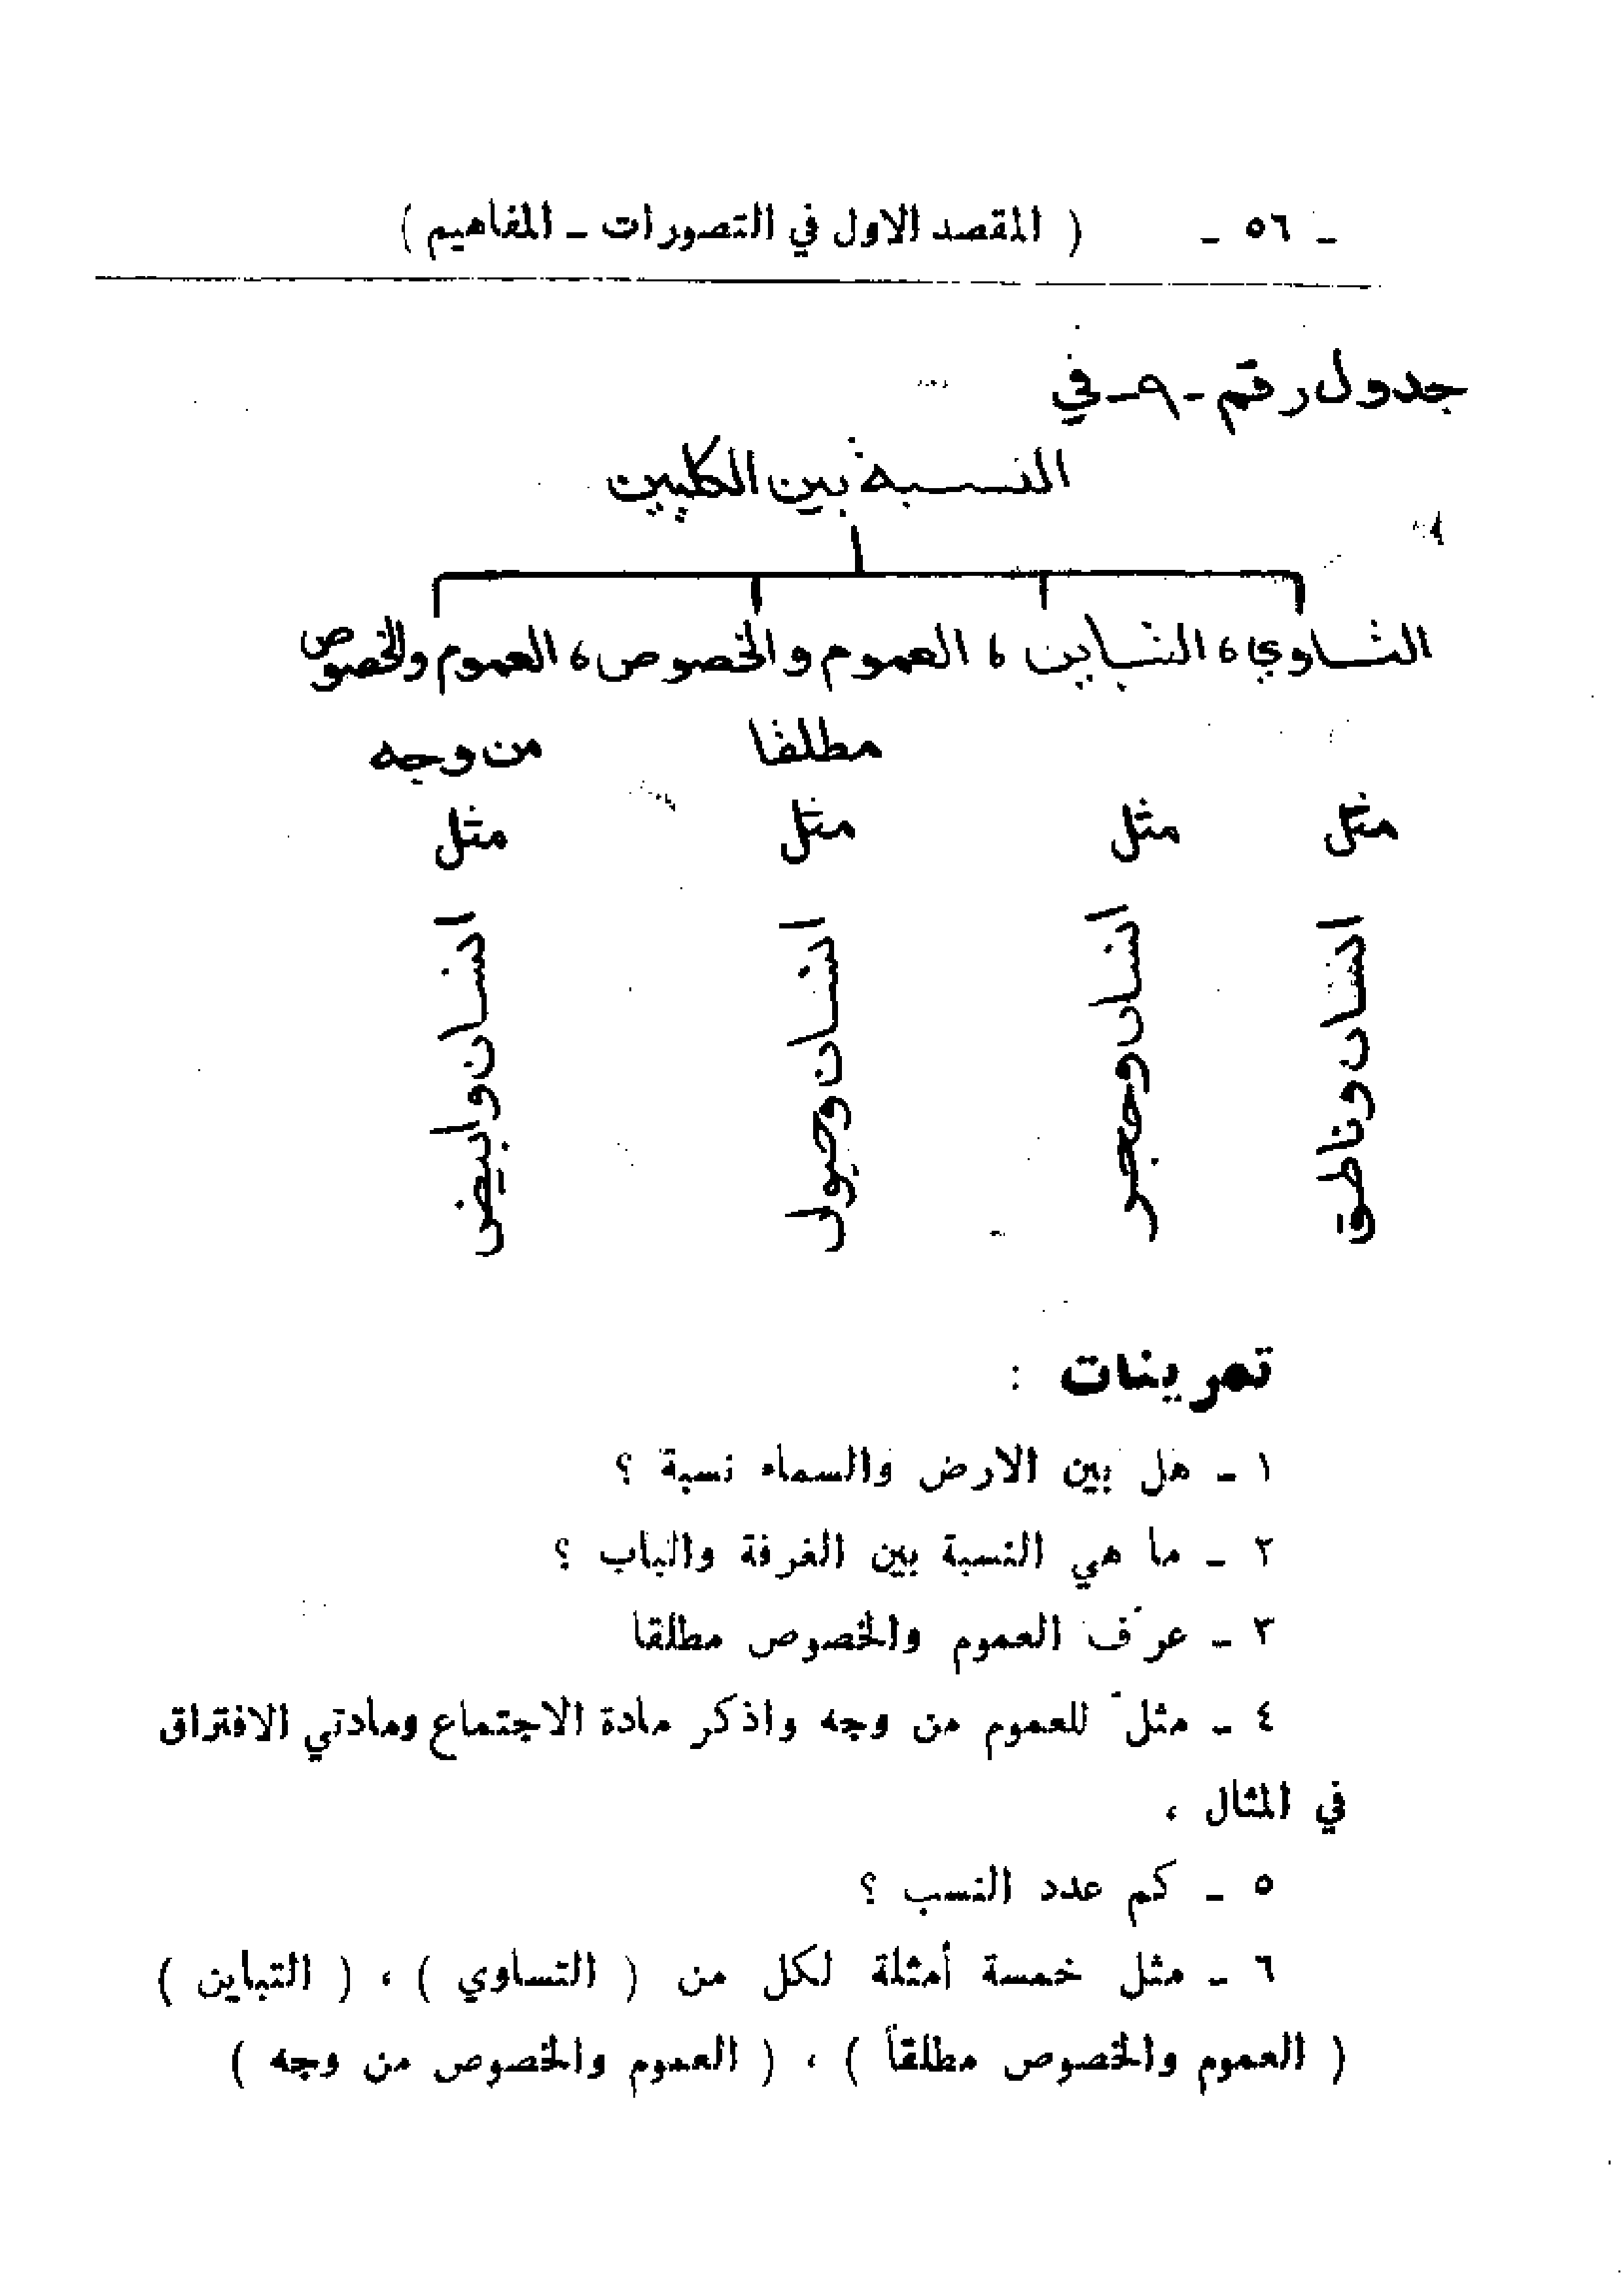 - ٥٦ - ( المقصد الاول في التصورات - المفاهيم )
جدول رقم -٩- في
النسبة بين الكليين
التساوي ، التباين ، العموم والخصوص ، العموم والخصوص
مطلقا من وجه
مثل مثل مثل مثل
انسان وناطق
انسان وحجر
انسان وحيوان
انسان وابيض
تمرينات :
١ - هل بين الارض والسماء نسبة ؟
٢ - ما هي النسبة بين الغرفة والباب ؟
٣ - عرّف العموم والخصوص مطلقا
٤ - مثلّ للعموم من وجه واذكر مادة الاجتماع ومادتي الافتراق
في المثال ،
٥ - كم عدد النسب ؟
٦ - مثل خمسة أمثلة لكل من ( التساوي ) ، ( التباين )
( العموم والخصوص مطلقاً ) ، ( العموم والخصوص من وجه )